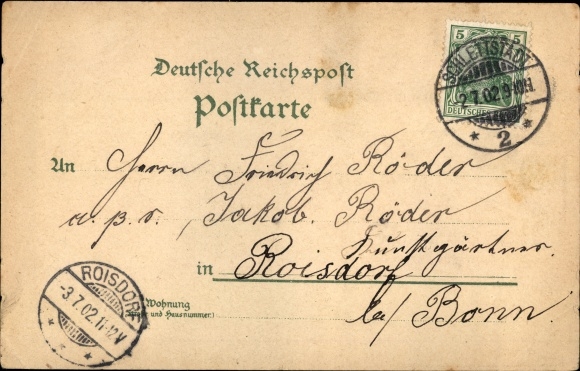 5 5
SCHLETTSTADT
2.7.02.9-10H
DEUTSCHES
* 2 *
Deutsche Reichspost
Postkarte
An Herrn Friedrich Röder
a.p.s. Jakob. Röder
Kunstgärtner.
in Roisdorf
b/ Bonn.
ROISDORF
-3.7.02.11-12V
Wohnung
(Straße und Hausnummer)